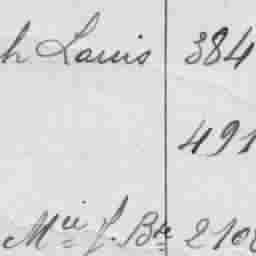 h Louis 384
491
Mie J. Bte 210